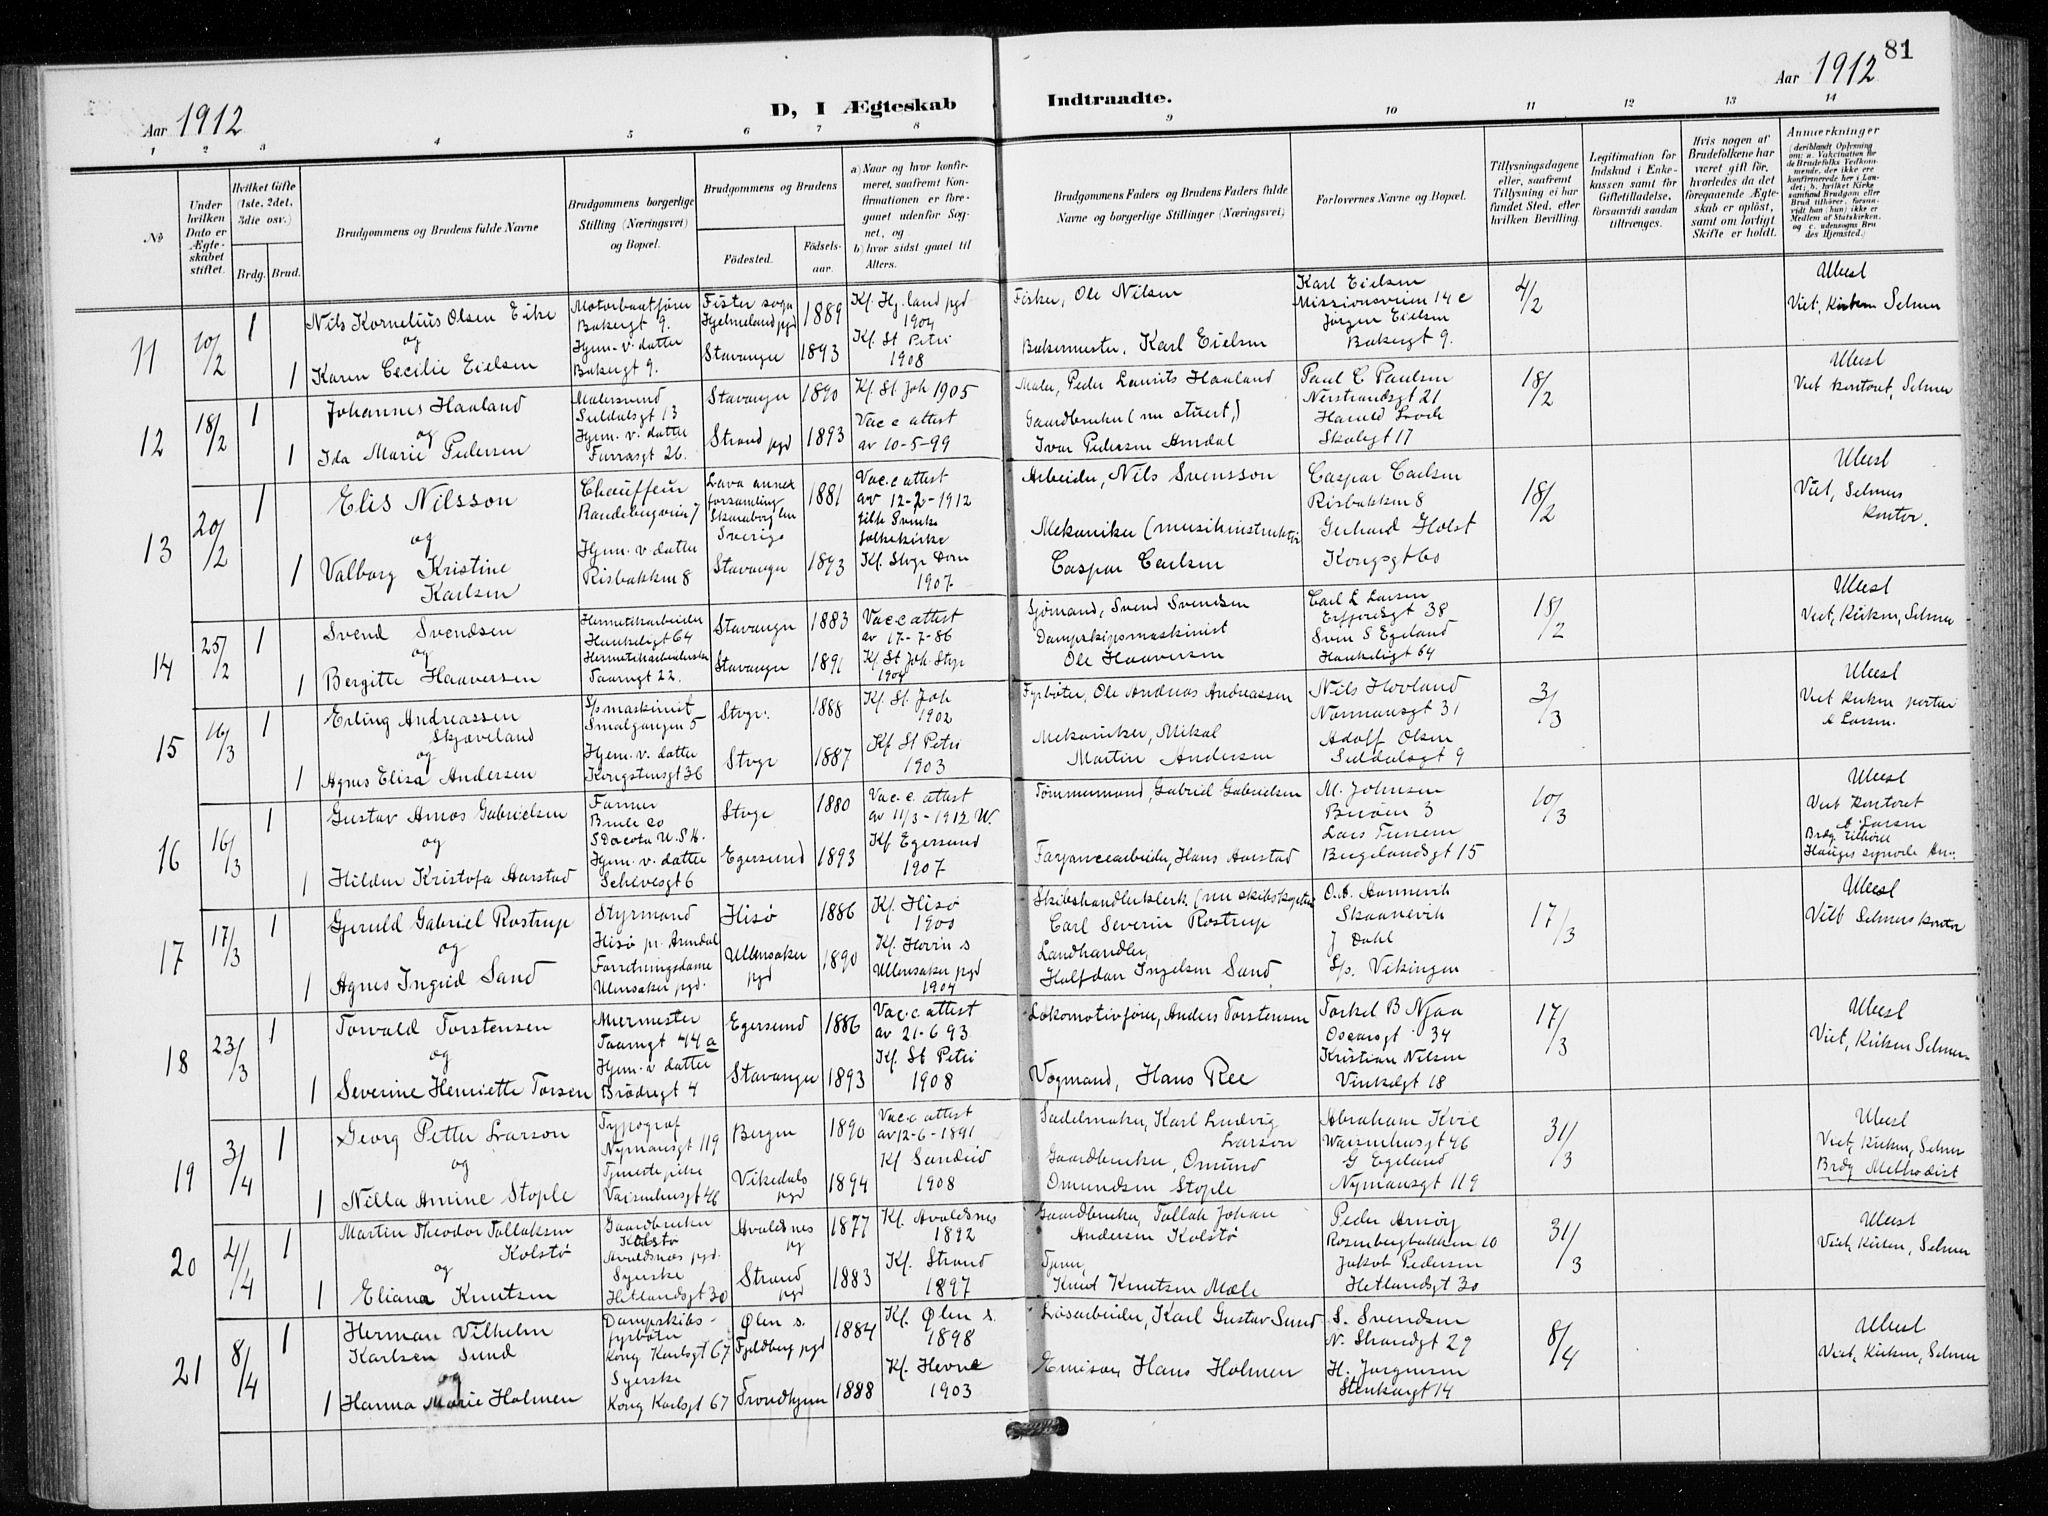 81
Aar 1912
D, I Ægteskab Indtraadte.
Aar 1912
1 2 3 4 5 6 7 8 9 10 11 12 13 14
No
Under hvilken Dato er Ægteskabet stiftet.
Hvilket Gifte (1ste, 2det, 3die osv.)
Brdg. Brud.
Brudgommens og Brudens fulde Navne
Brudgommens borgerlige Stilling (Næringsvei) og Bopæl.
Brudgommens og Brudens
Födested.
Födselsaar.
a) Naar og hvor konfirmeret, saafremt Konfirmationen er foregaaet udenfor Sognet, og
b) hvor sidst gaaet til Alters.
Brudgommens Faders og Brudens Faders fulde Navne og borgerlige Stillinger (Næringsvei)
Forlovernes Navne og Bopæl.
Tillysningsdagene eller, saafremt Tillysning ei har fundet Sted, efter hvilken Bevilling.
Legitimation for Indskud i Enkekassen samt for Giftetilladelse, forsaavidt saadan tiltrænges.
Hvis nogen af Brudefolkene har været gift för, hvorledes da det foregaaende Ægteskab er oplöst, samt om lovligt Skifte er holdt.
Anmærkninger
(deriblandt Oplysning om: a. Vakcination for de Brudefolks Vedkommende, der ikke ere konfirmerede her i Landet; b. hvilket Kirkesamfund Brudgom eller Brud tilhörer, forsaavidt han (hun) ikke er Medlem af Statskirken, og c. udensogns Brudes Hjemsted.)
11
10/2
1
Nils Kornelius Olsen Eike
og
1 Karen Cecilie Eielsen
Motorbaatfører
Bakergt 9.
Hjem. v. datter
Bakergt 9.
Fister sogn
Hjelmeland pgd
1889
Stavanger 1893
Kf. Hj.land pgd
1904
Kf. St Petri
1908
Fisker, Ole Nilsen
Bakermester, Karl Eielsen
Karl Eielsen
Missionsveien 14 c
Jørgen Eielsen
Bakergt 9.
4/2
Ubesl
Viet, Kirken Selmer
12
18/2
1
Johannes Haaland
og
1 Ida Marie Pedersen
Malersvend
Suldalsgt 13
Hjem. v. datter
Furrasgt 26.
Stavanger 1890
Strand pgd 1893
Kf. St Joh 1905
Vacc attest
av 10-5-99
Maler, Peder Laurits Haaland
Gaardbruker (nu stuert,)
Ivar Pedersen Amdal
Paul C Paulsen
Nerstrandsgt 21
Harald
Skolegt 17
18/2
Ubesl
Viet kontoret, Selmer
13
20/2
1
Elis Nilsson
og
1 Valborg Kristine
Karlsen
Chauffeur
Randebergveien 7
Hjem. v. datter
Risbakken 8
Lava annex
forsamling
Skaraborg len
Sverige
1881
Stavanger 1893
Vac.c attest
av 12-2-1912
tilh Svenske
folkekirke
Kf. Stvgr Dom
1907
Arbeider, Nils Svensson
Mekaniker (musikinstruktør
Caspar Carlsen
Caspar Carlsen
Risbakken 8
Gerhard Holst
Kongsgt 60
18/2
Ubesl
Viet, Selmers
kontor.
14
25/2
1
Svend Svendsen
og
1 Bergitte Haaversen
Hermetikarbeider
Haukeligt 64
Hermetikarbeiderske
Taarngt 22.
Stavanger 1883
Stavanger 1891
Vac.c attest
av 17-7-86
Kf. St Joh Stvgr
1904
Sjømand, Svend Svendsen
Dampskipsmaskinist
Ole Haaversen
Carl L Larsen
Erfjordsgt 38
Sven S Egeland
Haukeligt 64
18/2
Ubesl
Viet, Kirken, Selmer
15
16/3
1
Erling Andreassen
Skjæveland
og
1 Agnes Eliza Andersen
S/s maskinist
Smalgangen 5
Hjem. v. datter
Kongstensgt 36
Stvgr. 1888
Stvgr 1887
Kf. St Joh
1902
Kf St Petri
1903
Fyrbøter, Ole Andreas Andreassen
Mekaniker, Mikal
Martin Andersen
Nils Hovland
Normansgt 31
Adolf Olsen
Suldalsgt 9
3/3
Ubesl
Viet kirken
A Larsen.
16
16/3
1
Gustav Amos Gabrielsen
og
1 Hilda Kristofa Aarstad
Farmer
Brule co
S Dacota U.S.A.
Hjem. v. datter
Schevesgt 6
Stvgr 1880
Egersund 1893
Vac. c. attest
av 11/3-1912 W.
Kf Egersund
1907
Tømmermand, Gabriel Gabrielsen
Fajancearbeider, Hans Aarstad
M. Johnsen
Buøen 3
Lars Tunem
Bergelandsgt 15
10/3
Ubesl
Viet kontoret
A Larsen
Brdg tilhører
Hauges synode Am.
17
17/3
1
Gjeruld Gabriel Rostrup
og
1 Agnes Ingrid Sand
Styrmand
Hisø pr. Arendal
Forretningsdame
Ulensaker pgd.
Hisø 1886
Ullensaker pgd 1890
Kf. Hisø
1900
Kf. Hovin s
Ullensaker pgd
1904
Skibshandlerklerk (nu skibskaptein
Carl Severin Rostrup
Landhandler,
Halfdan Ingelsen Sand
O.A. Aannevik
Skaanevik
J Dahl
S/s. Vikingen
17/3
Ubesl
Viet Selmers kontor
18
23/3
1
Torvald Torstensen
og
1 Severine Henriette Torsen
Murmester
Taarngt 44 a
Hjem. v datter
Brødregt 4
Egersund 1886
Stavanger 1893
Vac.c attest
av 21-6 93
Kf. St Petri
1908
Lokomotivfører, Anders Torstensen
Vogmand, Hans Ree
Torkel B Njaa
Oscarsgt 34
Kristian Nilsen
Vinkelgt 18
17/3
Ubesl
Viet, Kirken Selmer
19
3/4
1
Georg Petter Larson
og
1 Nilla Amine Stople
Typograf
Nymansgt 119
Tjenestepike
Vaisenhusgt 46
Bergen 1890
Vikedals pgd 1894
Vac.c attest
av 12-6-1891
Kf Sandeid
1908
Sadelmaker, Karl Ludvig
Larson
Gaardbruker, Omund
Omundsen Stople
Abraham Kvie
Waisenhusgt 46
G Egeland
Nymansgt 119
31/3
Ubesl
Viet, Kirken, Selmer
Brdg Methodist
20
4/4
1
Martin Theodor Tallaksen
Kolstø
og
1 Eliana Knutsen
Gaardbruker
Kolstø
Avaldsnes pgd.
Syerske
Hetlandsgt 30
Avaldsnes pg 1877
Strand pgd 1883
Kf. Avaldsnes
1892
Kf. Strand
1897
Gaardbruker, Tallak Johan
Andersen Kolstø
Tjener,
Knut Knutsen Mæle
Peder Amøy
Rosenbergbakken 10
Jakob Pedersen
Hetlandsgt 30
31/3
Ubesl
Viet, Kirken, Selmer
21
8/4
1
Herman Vilhelm
Karlsen Sund
og
1 Hanna Marie Holmen
Dampskibs-
fyrbøter
Kong Karlsgt 67
Syerske
Kong Karlsgt 67
Ølen s.
Fjeldberg pgd
1884
Trondhjem 1888
Kf. Ølen s.
1898
Kf. Hevne
1903
Løsarbeider, Karl Gustav Sund
Emisær, Hans Holmen
S. Svendsen
N. Strandgt 29
H. Jørgensen
Stenkargt 14
8/4
Ubesl
Viet, Kirken, Selmer